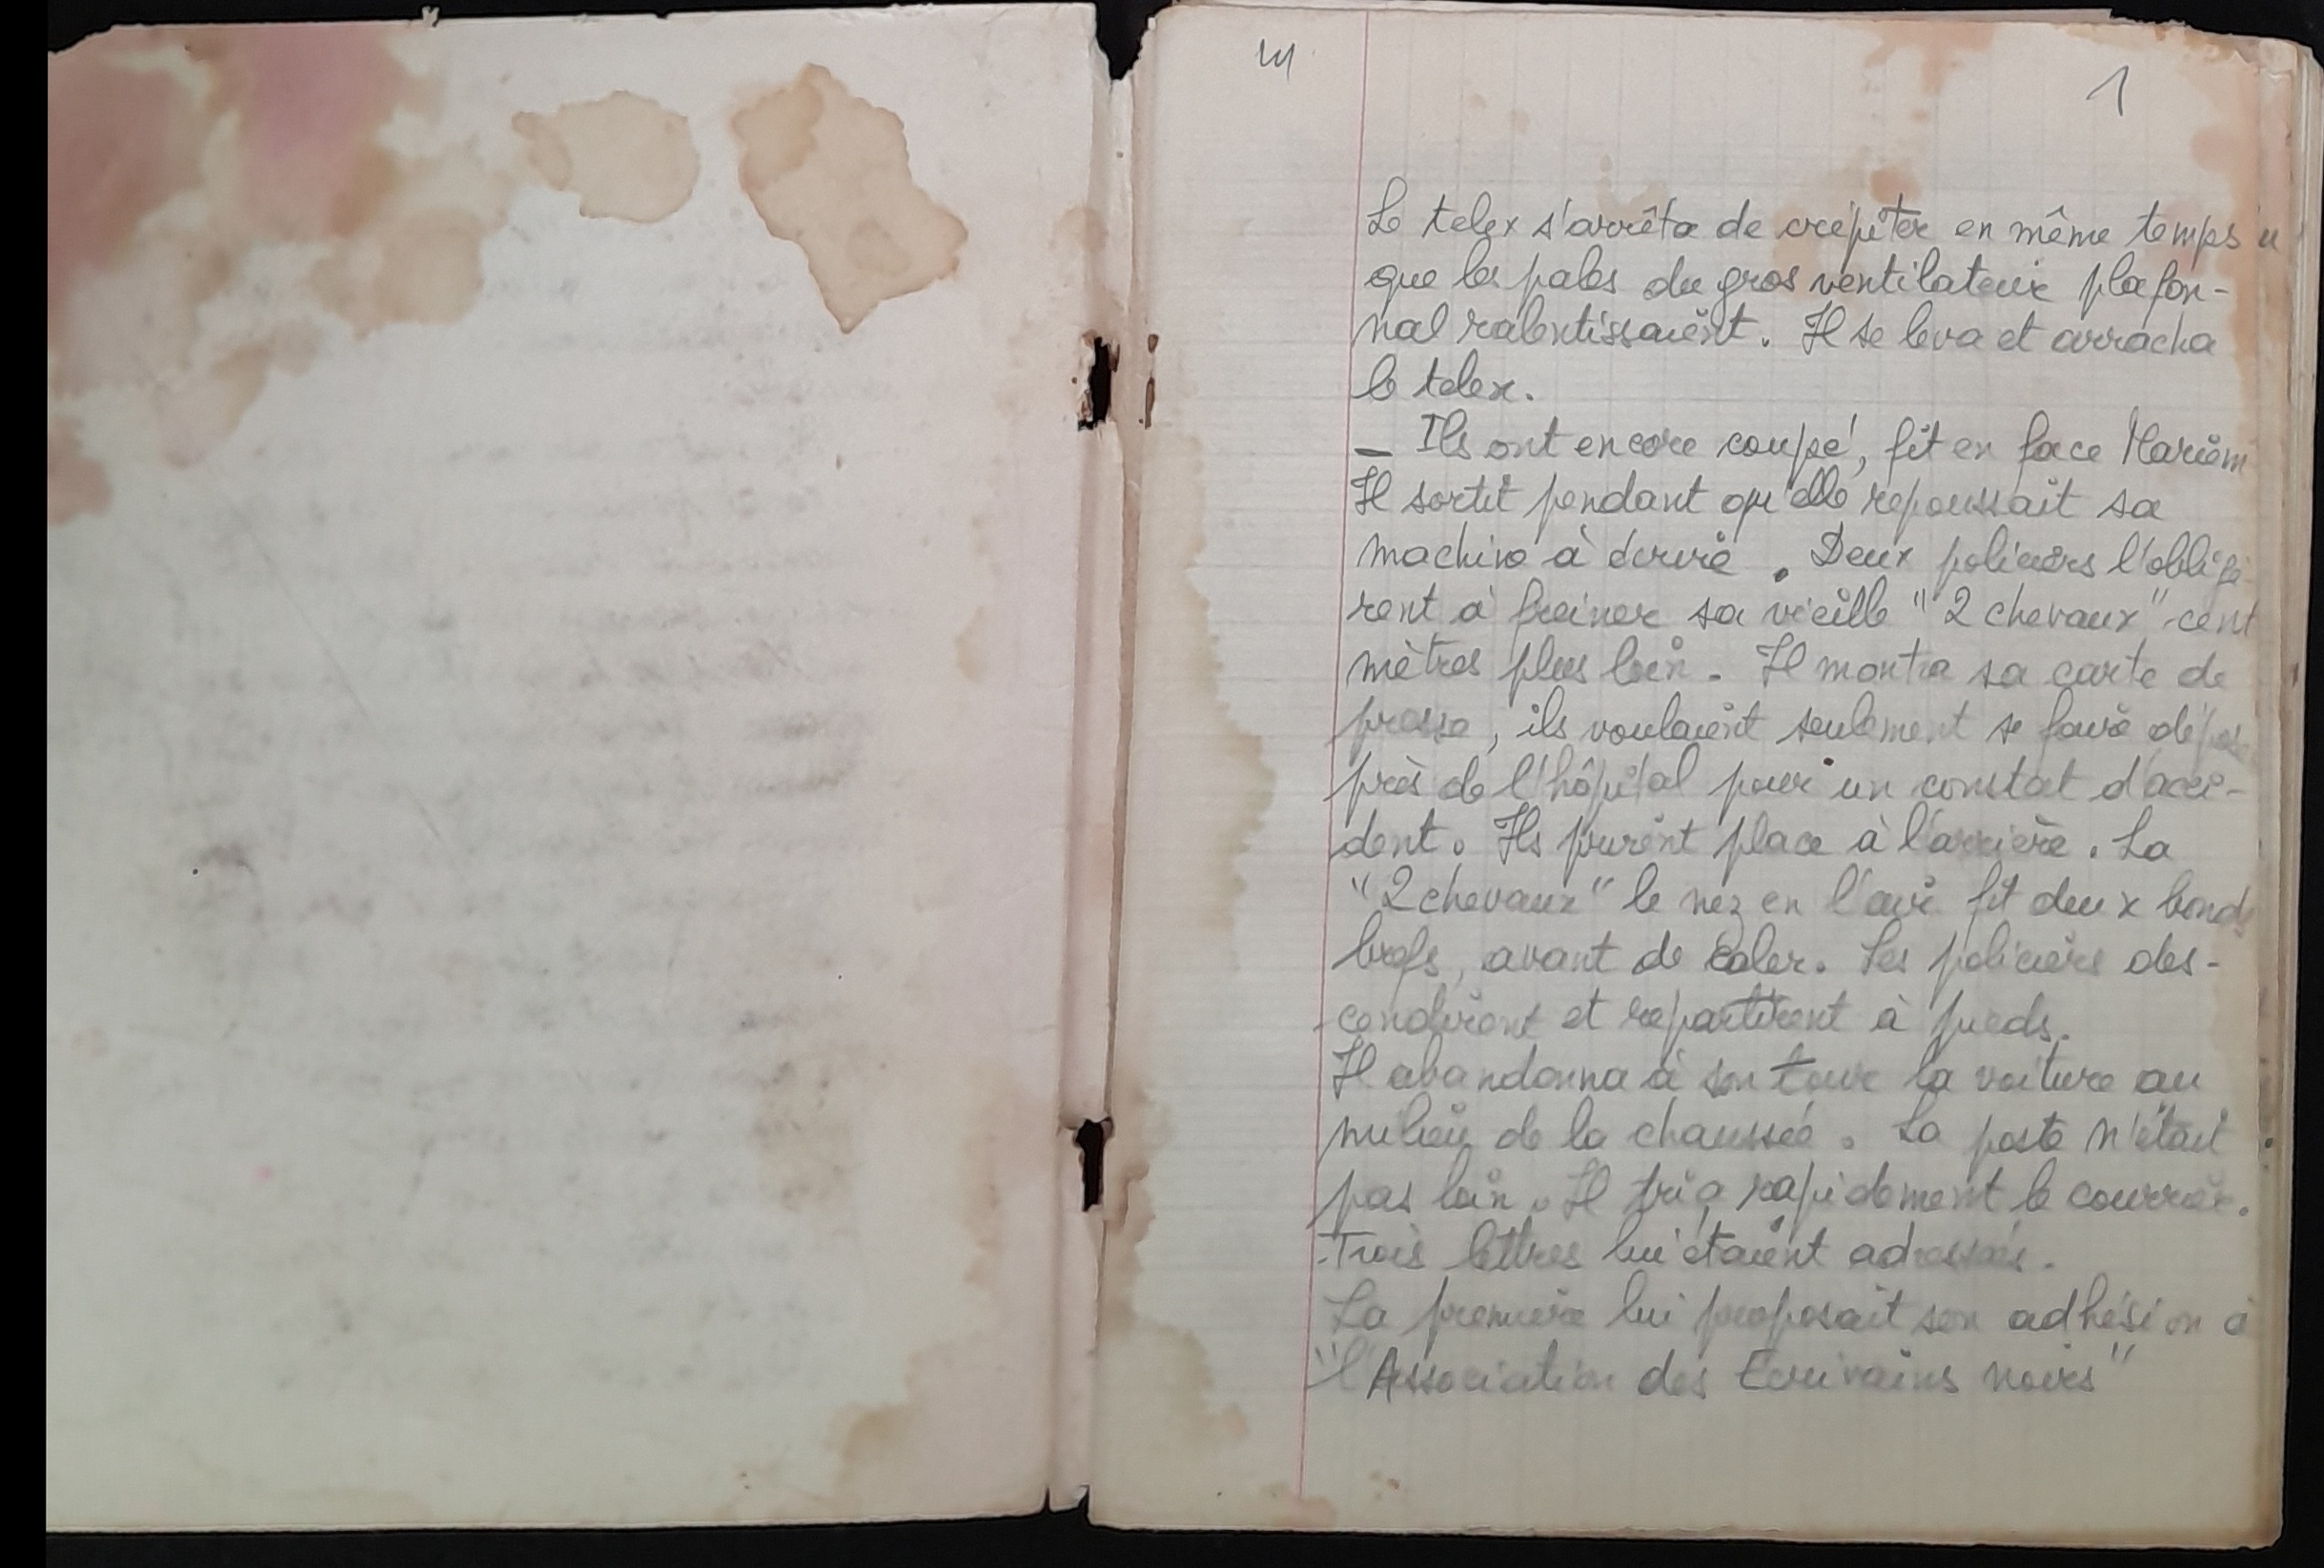 1
Le telex s'arrêta de crépiter en même temps
que les pales du gros ventilateur plafon-
nal ralentissaient. Il se leva et arracha
le telex.
— Ils ont encore coupé, fit en face Mariem
Il sortit pendant qu'elle repoussait sa
machine à écrire. Deux policiers l'obligè-
rent à freiner sa vieille "2 chevaux" cent
mètres plus loin. Il montra sa carte de
presse, ils voulaient seulement se faire déposer
près de l'hôpital pour un constat d'acci-
dent. Ils prirent place à l'arrière. La
"2 chevaux" le nez en l'air fit deux bonds
brefs, avant de caler. Les policiers des-
cendirent et repartirent à pieds.
Il abandonna à son tour la voiture au
milieu de la chaussée. La poste n'était
pas loin. Il tria rapidement le courrier.
Trois lettres lui étaient adressées.
La première lui proposait son adhésion à
"l'Association des Ecrivains noirs"